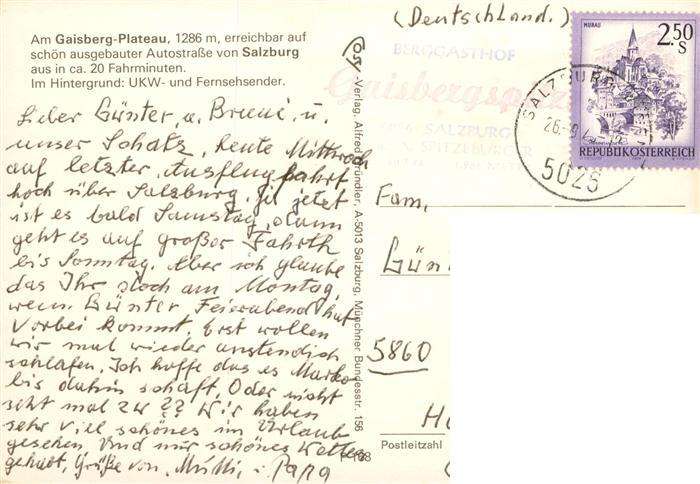 Am Gaisberg-Plateau, 1286 m, erreichbar auf
schön ausgebauter Autostraße von Salzburg
aus in ca. 20 Fahrminuten.
Im Hintergrund: UKW- und Fernsehsender.
Lieber Günter, u. u.
unser Schatz, heute Mittwoch
auf letzter Ausflugfahrt,
hoch über Salzburg. Ja jetzt
ist es bald Samstag, dann
geht es auf großer Fahrth
bis Sonntag. Aber ich glaube
das Ihr doch am Montag,
wenn Günter Feierabend hat
Vorbei kommt. Erst wollen
wir mal wieder anstendich
schlafen. Ich hoffe das es Marko
bis dahin schaft. Oder nicht
seht mal zu ?? Wir haben
sehr viel schönes im Urlaub
gesehen Und nur schönes Wetter
gehabt, Grüße von. Mutti, u. Papa
-Verlag, Alfred Gründler, A-5013 Salzburg, Münchner Bundesstr. 156
(Deutschland.)
BERGGASTHOF
Gaisbergspitze
SALZBURG
SPITZEBURGER
MURAU
2.50
S
REPUBLIK ÖSTERREICH
SALZBURG
26.-9.
5025
Fam.
Gün
5860
H
Postleitzahl